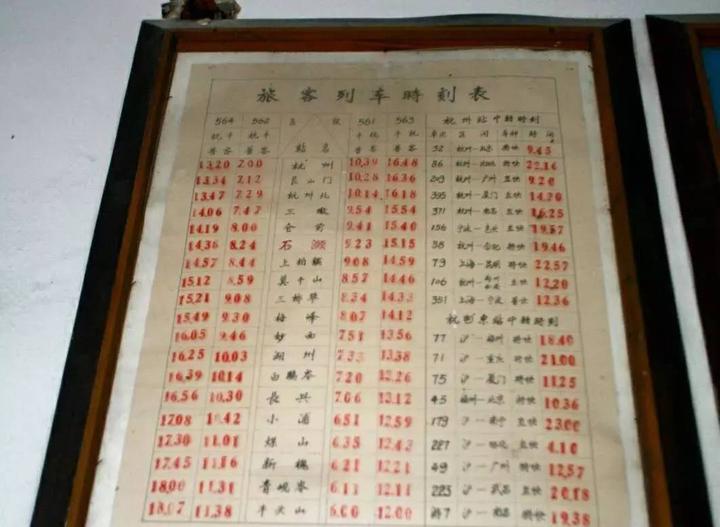 旅客列车時刻表
564 562 区 段 561 563 杭州站中转時刻
杭牛 杭牛 牛杭 牛杭 车次 区间 车种 時间
普客 普客 站名 普客 普客 32 杭州—北京 特快 9.45
13.20 7.00 杭州 10.39 16.48 86 杭州— 特快 22.16
13.34 7.12 艮山门 10.28 16.36 203 杭州—广州 直快 9.20
13.47 7.29 杭州北 10.14 16.18 395 杭州—厦门 直快 14.20
14.06 7.47 三墩 9.54 15.54 311 杭州—南昌 直快 16.25
14.19 8.00 仓前 9.41 15.40 156 宁波— 直快 19.57
14.36 8.24 石濑 9.23 15.15 58 杭州—合肥 特快 19.46
14.57 8.44 上柏 9.08 14.59 79 上海—昆明 特快 22.57
15.12 8.59 莫干山 8.57 14.46 106 杭州— 直快 12.20
15.21 9.08 三桥埠 8.34 14.33 351 上海—宁波 普快 12.36
15.49 9.30 梅峰 8.07 14.12 杭州東站中转時刻
16.05 9.46 妙西 7.51 13.56 77 沪—福州 特快 18.40
16.25 10.03 湖州 7.33 13.38 71 沪—重庆 特快 21.00
16.39 10.14 白鵰岺 7.20 12.26 75 沪—厦门 特快 11.25
16.56 10.30 長兴 7.06 13.12 45 福州—北京 特快 10.36
17.08 10.42 小浦 6.51 12.59 179 沪—南宁 直快 23.00
17.30 11.01 煤山 6.35 12.43 227 沪—怀化 直快 4.10
17.45 11.16 新槐 6.21 12.21 49 沪—广州 特快 12.57
18.00 11.31 青岘岺 6.11 12.11 223 沪—武昌 直快 20.18
18.07 11.38 牛头山 6.00 12.00 沪—南昌 特快 19.38